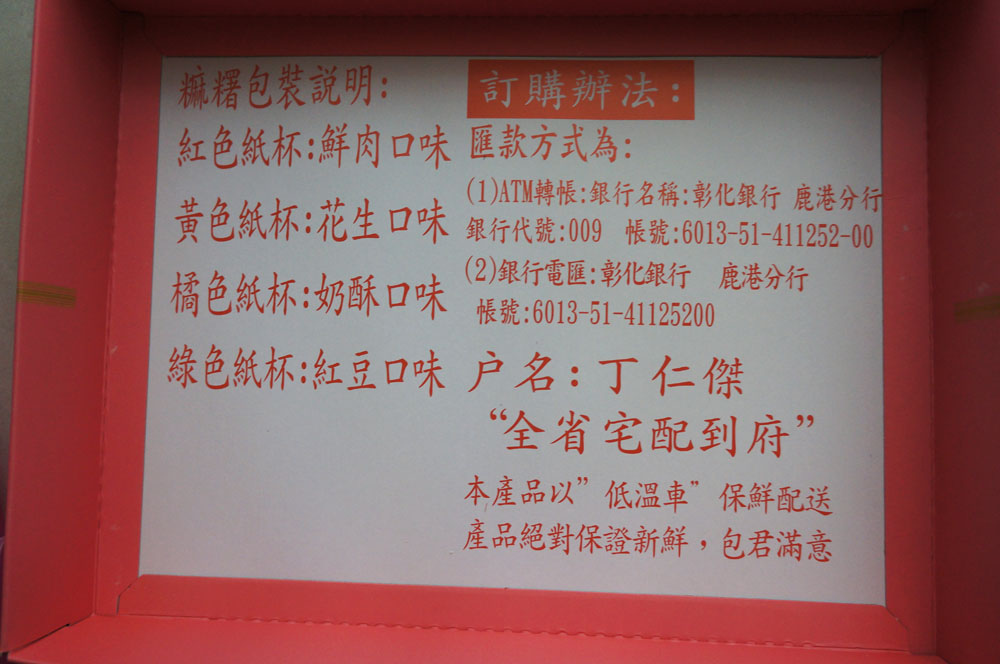 糍糬包裝説明:
紅色紙杯:鮮肉口味
黃色紙杯:花生口味
橘色紙杯:奶酥口味
綠色紙杯:紅豆口味
訂購辦法:
匯款方式為:
(1)ATM轉帳:銀行名稱:彰化銀行 鹿港分行
銀行代號:009 帳號:6013-51-411252-00
(2)銀行電匯:彰化銀行 鹿港分行
帳號:6013-51-41125200
户名:丁仁傑
“全省宅配到府”
本產品以”低溫車”保鮮配送
產品絕對保證新鮮，包君滿意